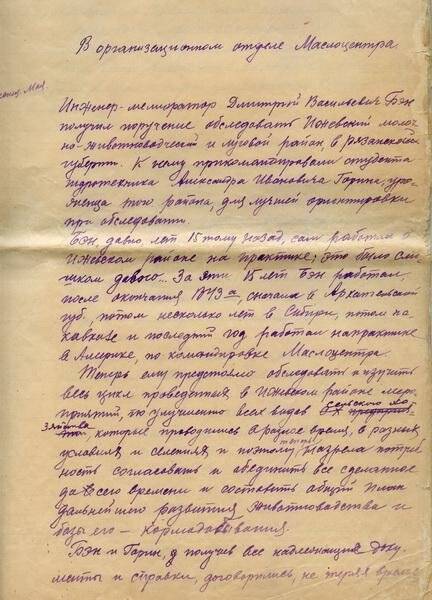 В организационном отделе Маслоцентра.
Инженер-мелиоратор Дмитрий Васильевич Бэн
получил поручение обследовать Ижевский молоч
но-животноводческий и луговой район, в рязанской
губерн. К нему прикомандировали студента
гидротехника Александра Ивановича Горина, уро-
женца того района, для лучшей ориентировки
при обследовании.
Бэн, давно, лет 15 тому назад, сам работал в
Ижевском районе на практике; это было сли
шком давно... За эти 15 лет Бэн работал,
после окончания ВУЗа, сначала в Архангельской
губ. потом несколько лет в Сибири, потом на
Кавказе и последний год работал на практике
в Америке, по командировке Маслоцентра.
Теперь ему предстояло обследовать и изучить
весь цикл проведенных в Ижевском районе меро
приятий, по улучшению всех видов сельского хо
зяйства, которые проводились в разное время, в разных
условиях и селениях и поэтому теперь назрела потреб
ность согласовать и объединить все сделанное
до сего времени и составить общий план
дальнейшего развития животноводства и
базы его – кормодобывания.
Бэн и Горин, получив все надлежащие доку
менты и справки, договорились, не теряя время